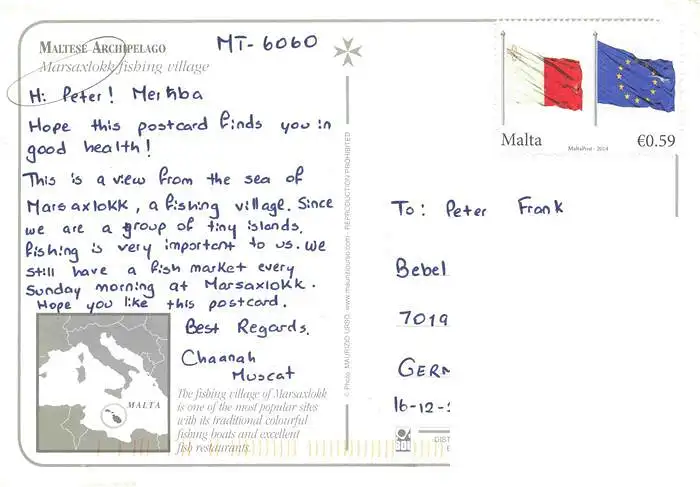 MALTESE ARCHIPELAGO
Marsaxlokk fishing village
MT-6060
Hi Peter! Merħba
Hope this postcard finds you in
good health!
This is a view from the sea of
Marsaxlokk, a fishing village. Since
we are a group of tiny islands.
fishing is very important to us. We
still have a fish market every
Sunday morning at Marsaxlokk.
Hope you like this postcard.
Best Regards.
Chaanah
Muscat
MALTA
The fishing village of Marsaxlokk
is one of the most popular sites
with its traditional colourful
fishing boats and excellent
fish restaurants.
© Photo: MAURIZIO URSO, www.mauriziourso.com - REPRODUCTION PROHIBITED
Malta
MaltaPost - 2014
€0.59
To: Peter Frank
Bebel
7019
GERM
16-12-
DIST